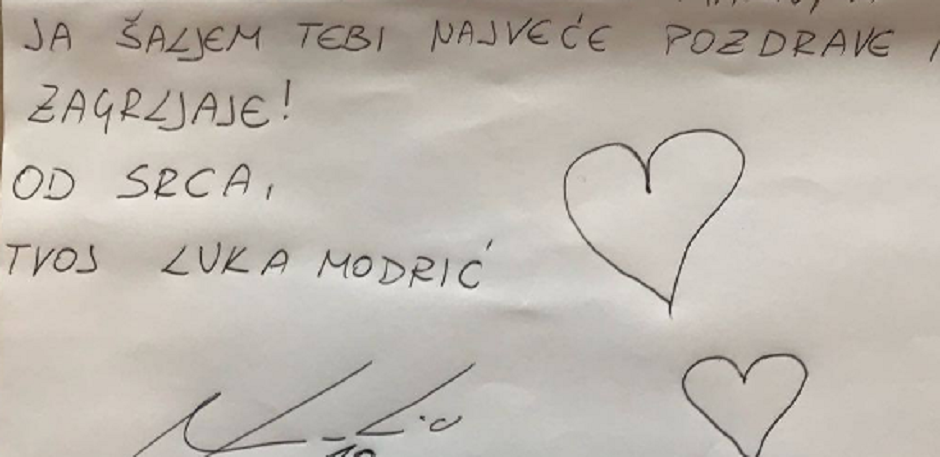 JA ŠALJEM TEBI NAJVEĆE POZDRAVE
ZAGRLJAJE!
OD SRCA,
TVOJ LUKA MODRIĆ
10